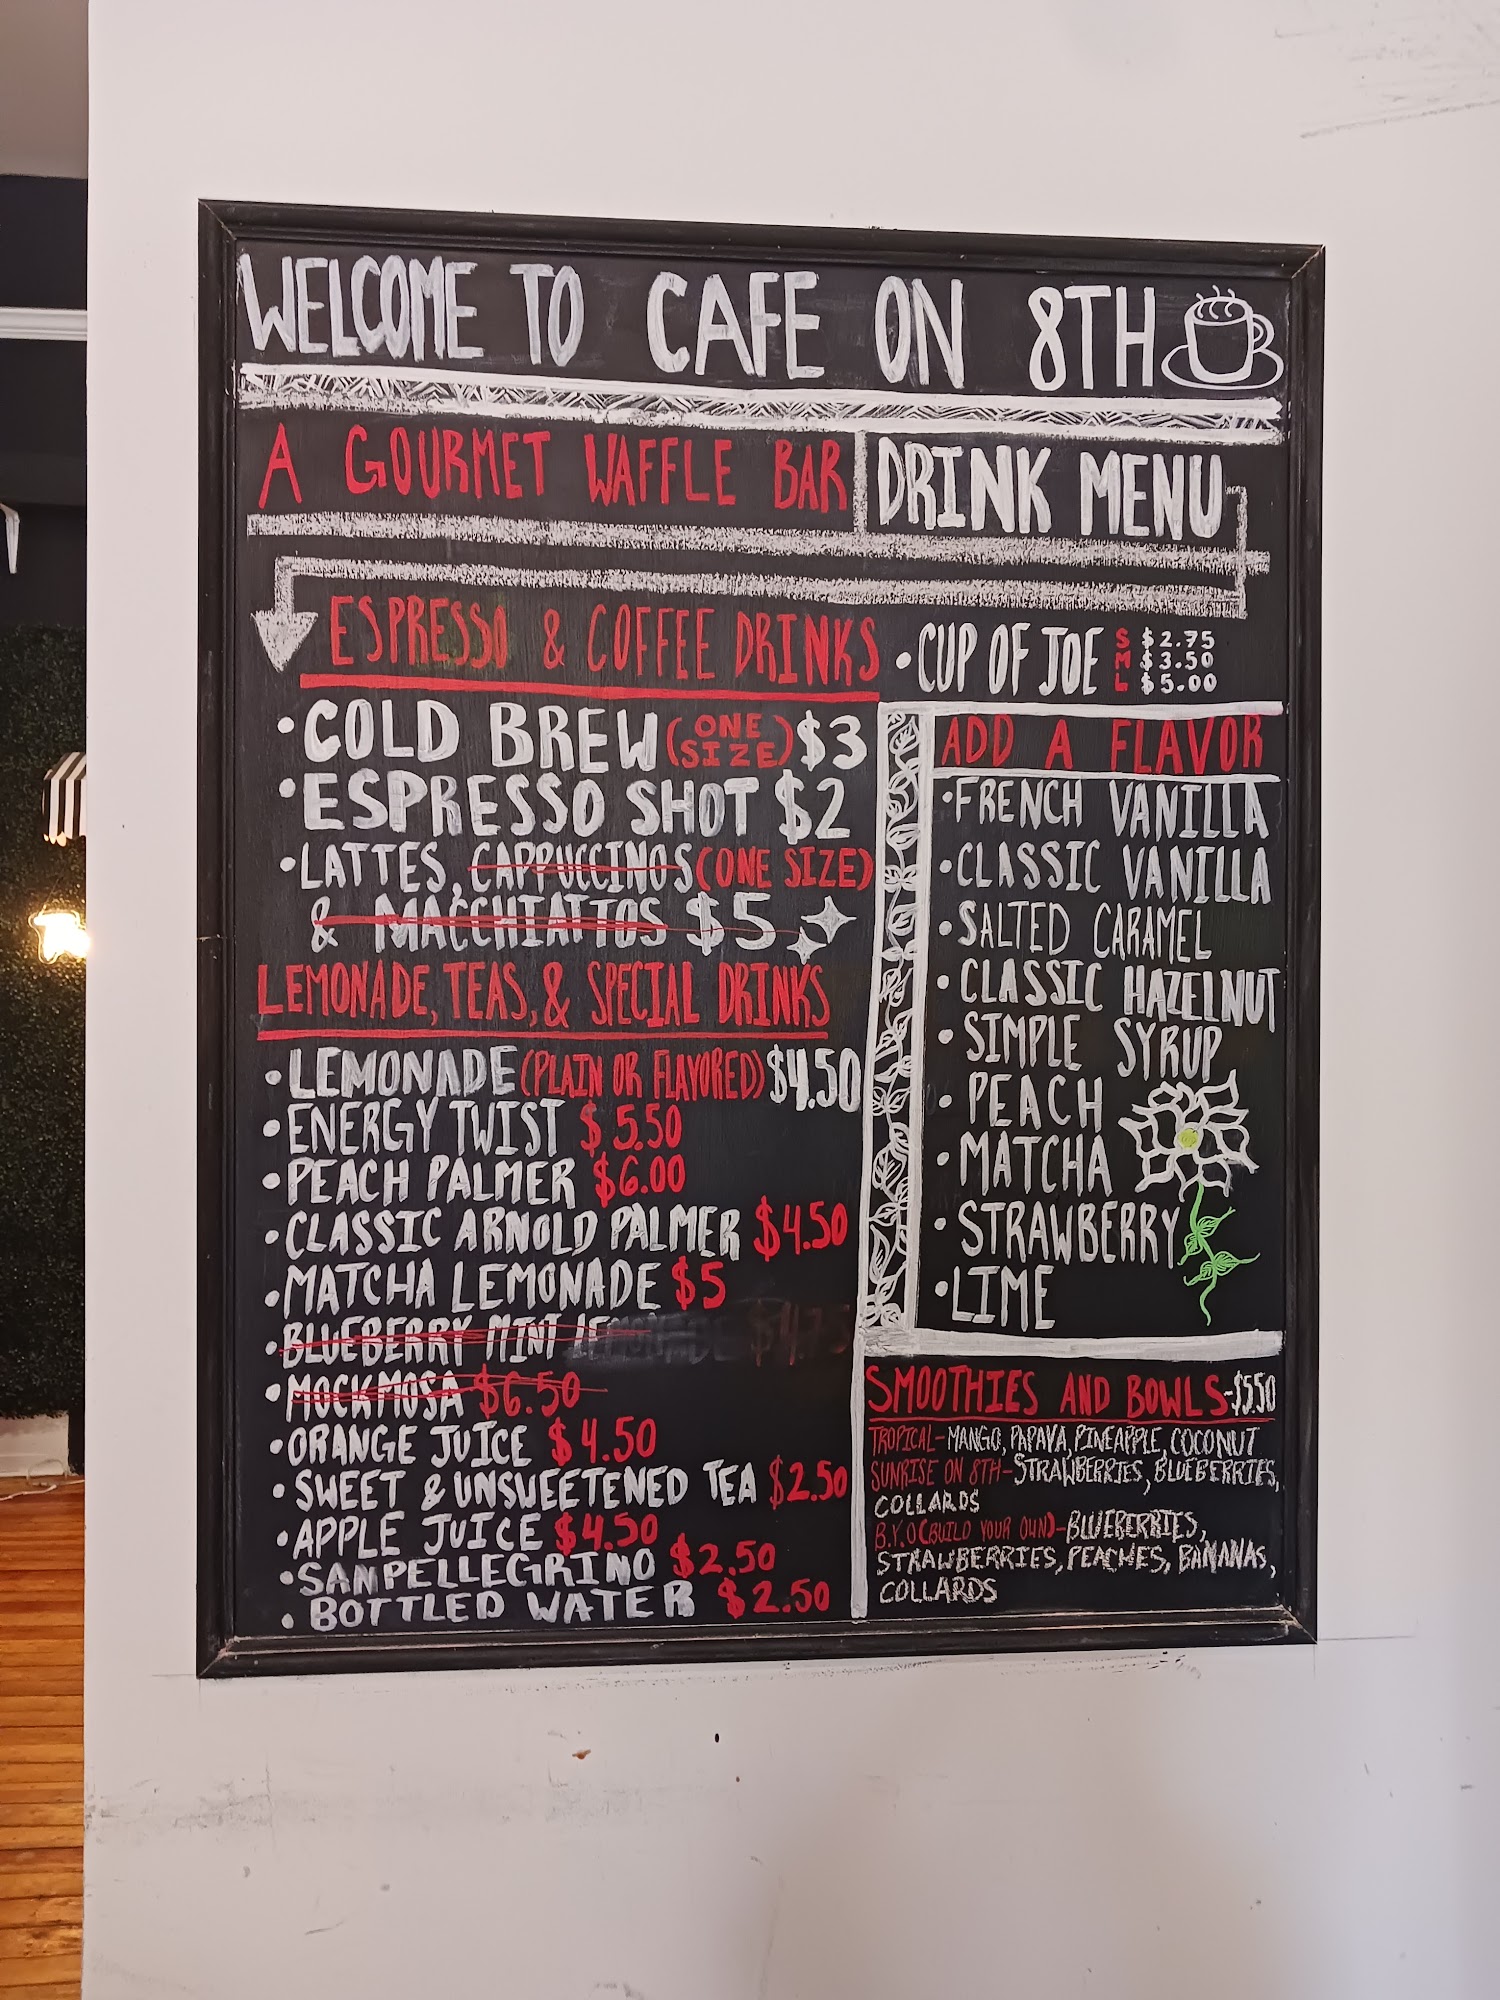 WELCOME TO CAFE ON 8TH
A GOURMET WAFFLE BAR
DRINK MENU
ESPRESSO & COFFEE DRINKS
• COLD BREW (ONE SIZE) $3
• ESPRESSO SHOT $2
• LATTES, CAPPUCCINOS (ONE SIZE)
& MACCHIATTOS $5
LEMONADE, TEAS, & SPECIAL DRINKS
• LEMONADE (PLAIN OR FLAVORED) $4.50
• ENERGY TWIST $5.50
• PEACH PALMER $6.00
• CLASSIC ARNOLD PALMER $4.50
• MATCHA LEMONADE $5
• BLUEBERRY MINT LEMONADE $4.75
• MOCKMOSA $6.50
• ORANGE JUICE $4.50
• SWEET & UNSWEETENED TEA $2.50
• APPLE JUICE $4.50
• SANPELLEGRINO $2.50
• BOTTLED WATER $2.50
• CUP OF JOE S $2.75
M $3.50
L $5.00
ADD A FLAVOR
• FRENCH VANILLA
• CLASSIC VANILLA
• SALTED CARAMEL
• CLASSIC HAZELNUT
• SIMPLE SYRUP
• PEACH
• MATCHA
• STRAWBERRY
• LIME
SMOOTHIES AND BOWLS-$5.50
TROPICAL-MANGO, PAPAYA, PINEAPPLE, COCONUT
SUNRISE ON 8TH-STRAWBERRIES, BLUEBERRIES,
COLLARDS
B.Y.O (BUILD YOUR OWN)-BLUEBERRIES,
STRAWBERRIES, PEACHES, BANANAS,
COLLARDS